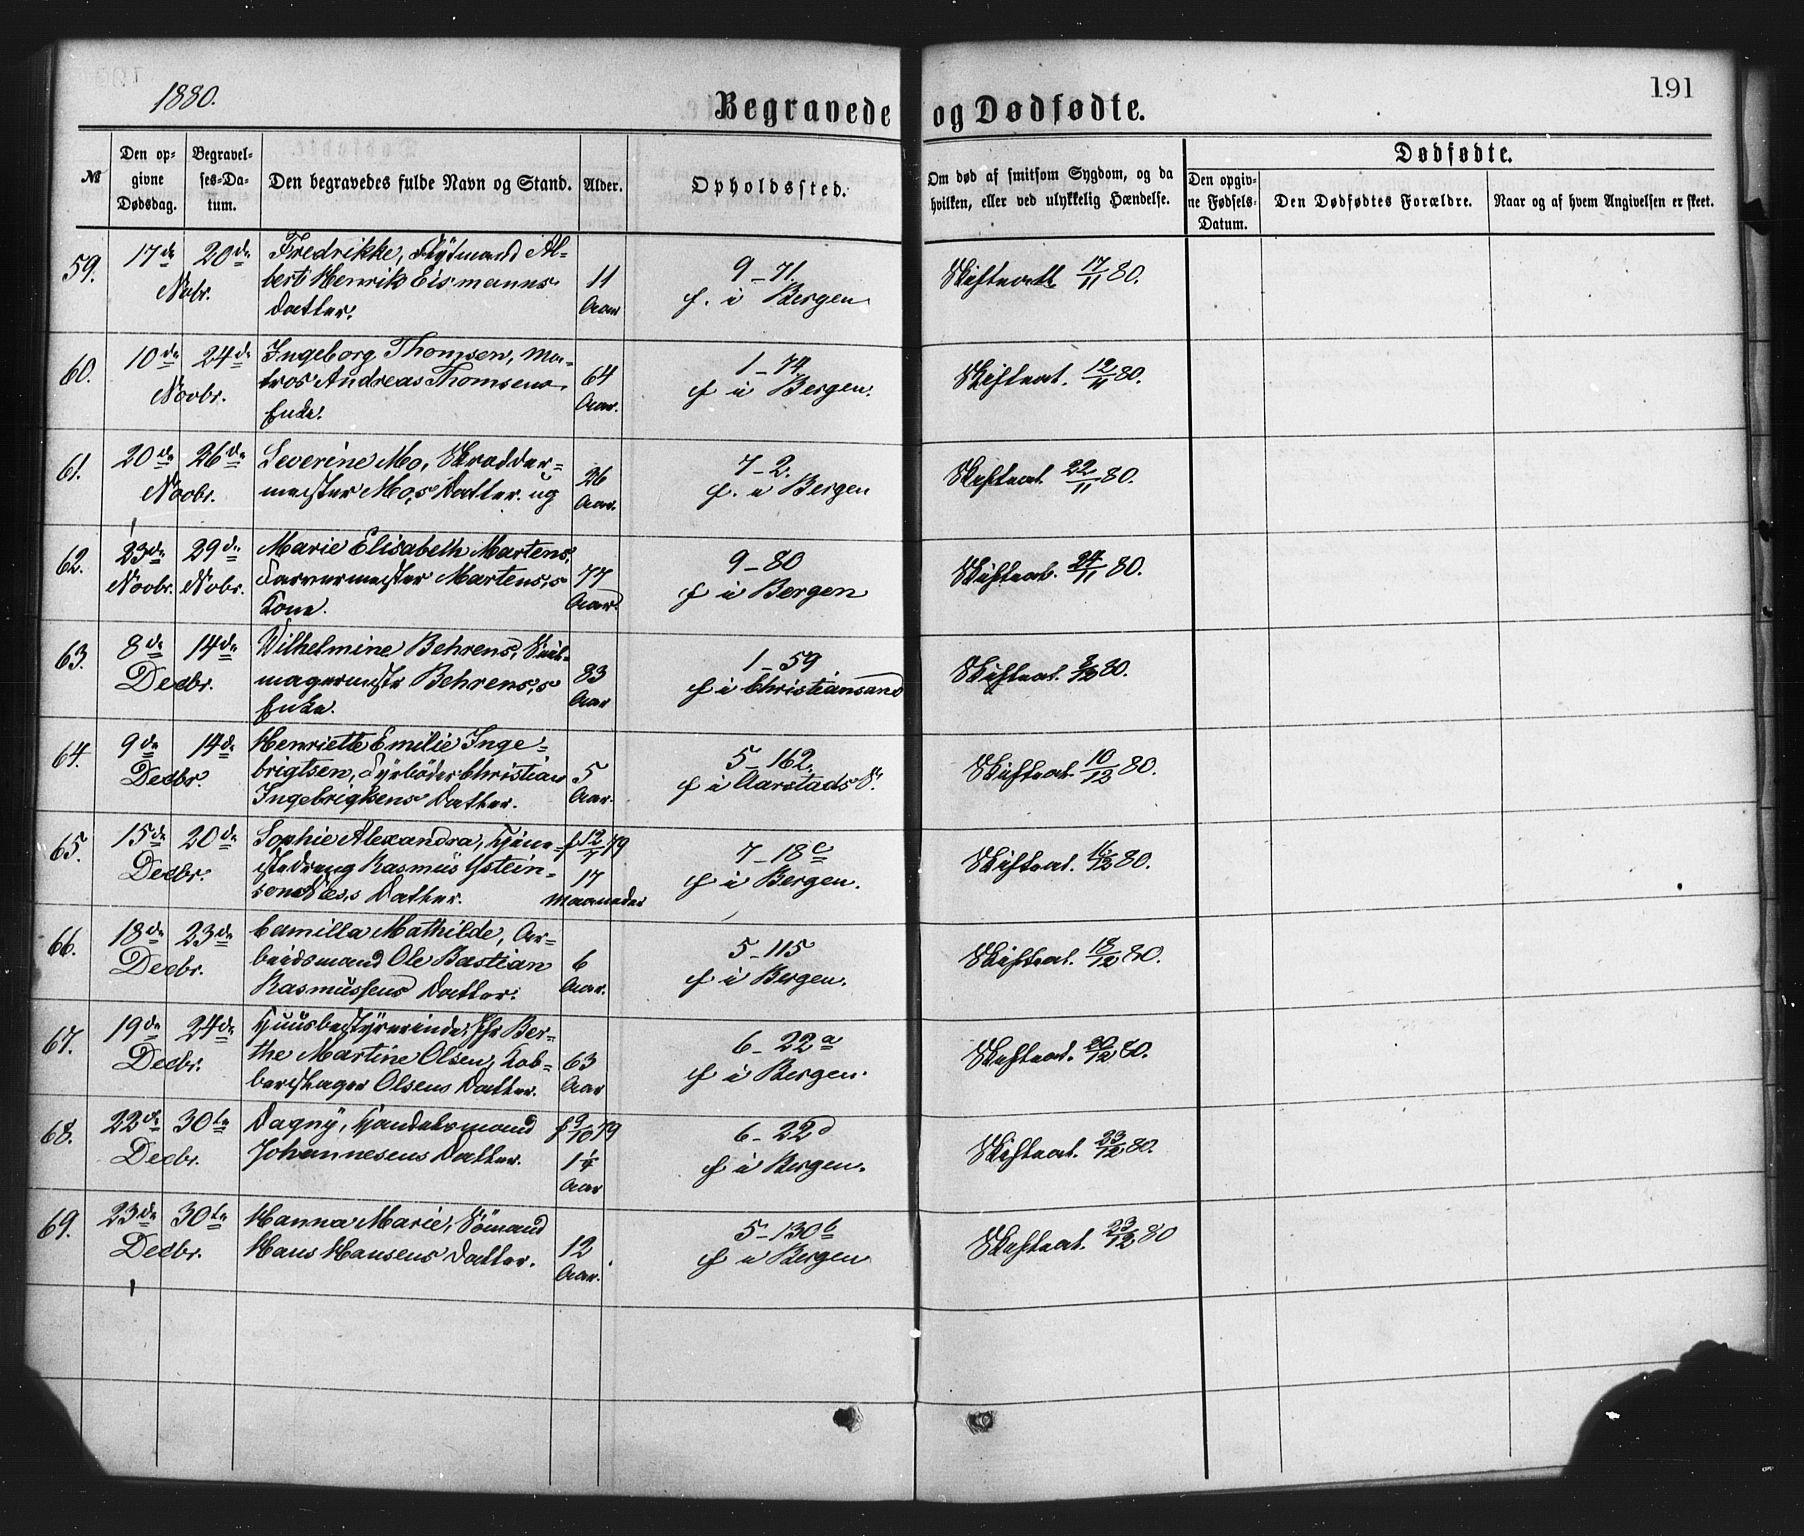 1880.
Begravede og Dødfødte.
191
№
Den opgivne Dødsdag.
Begravelses-Datum.
Den begravedes fulde Navn og Stand.
Alder.
Opholdssted.
Om død af smitsom Sygdom, og da hvilken, eller ved ulykkelig Hændelse.
Dødfødte.
Den opgivne Fødsels-Datum.
Den Dødfødtes Forældre.
Naar og af hvem Angivelsen er skeet.
59. 17de 20de Fredrikke, Flytmand Al-
Novbr. bert Henrik Eismanns 11 9-71. Skifteatt. 17/11 80.
Datter. Aar f. i Bergen
60. 10de 24de Ingeborg Thomsen, Ma- 1-74.
Novbr. tros Andreas Thomsens 64 f i Bergen. Skifteat. 12/11 80.
Enke. Aar.
61. 20de 26de Severine Mo, Skrædder- 7-2.
Novbr. mester Mo,s Datter. ug 36 Aar. f. i Bergen Skifteat. 22/11 80.
62. 23de 29de Marie Elisabeth Martens, 9-80
Novbr. Nobr. Farvermester Martens,s 77 f i Bergen Skifteat. 24/11 80.
Kone. Aar
63. 8de 14de Wilhelmine Behrens, Seil- 1-59
Decbr. magermester Behrens,s 83 f i Christiansand Skifteat. 9/12 80.
Enke. Aar
64. 9de 14de Henriette Emilie Inge-
Decbr. brigtsen, Fyrböder Christian 5 5-162. Skifteat. 10/12 80.
Ingebrigtsens Datter. Aar. f i Aarstads S.
65. 15de 20de Sophie Alexandra, Tjene- f 12/7 79
Decbr. stedreng Rasmus Ystein- 17 7-18c Skifteat. 16/12 80.
Datter. Maaneder f i Bergen.
66. 18de 23de Camilla Mathilde, Ar-
Decbr. beidsmand Ole Bastian 6 5-115 Skifteat. 18/12 80.
Rasmussens Datter. Aar. f i Bergen.
67. 19de 24de Huusbestyrerinde, Ber-
Decbr. the Martine Olsen, Kob- 63 6-22a Skifteat. 20/12 80.
berslager Olsens Datter. Aar f i Bergen.
68. 22de 30te Dagny, Handelsmand f 9/10 79 6-22d
Decbr. Johannesens Datter. 1 1/4 Aar f i Bergen. Skifteat. 23/12 80.
69. 23de 30te Hanna Marie, Sömand 5-130b
Decbr. Hans Hansens Datter. 12 Aar. f i Bergen Skifteat. 23/12 80